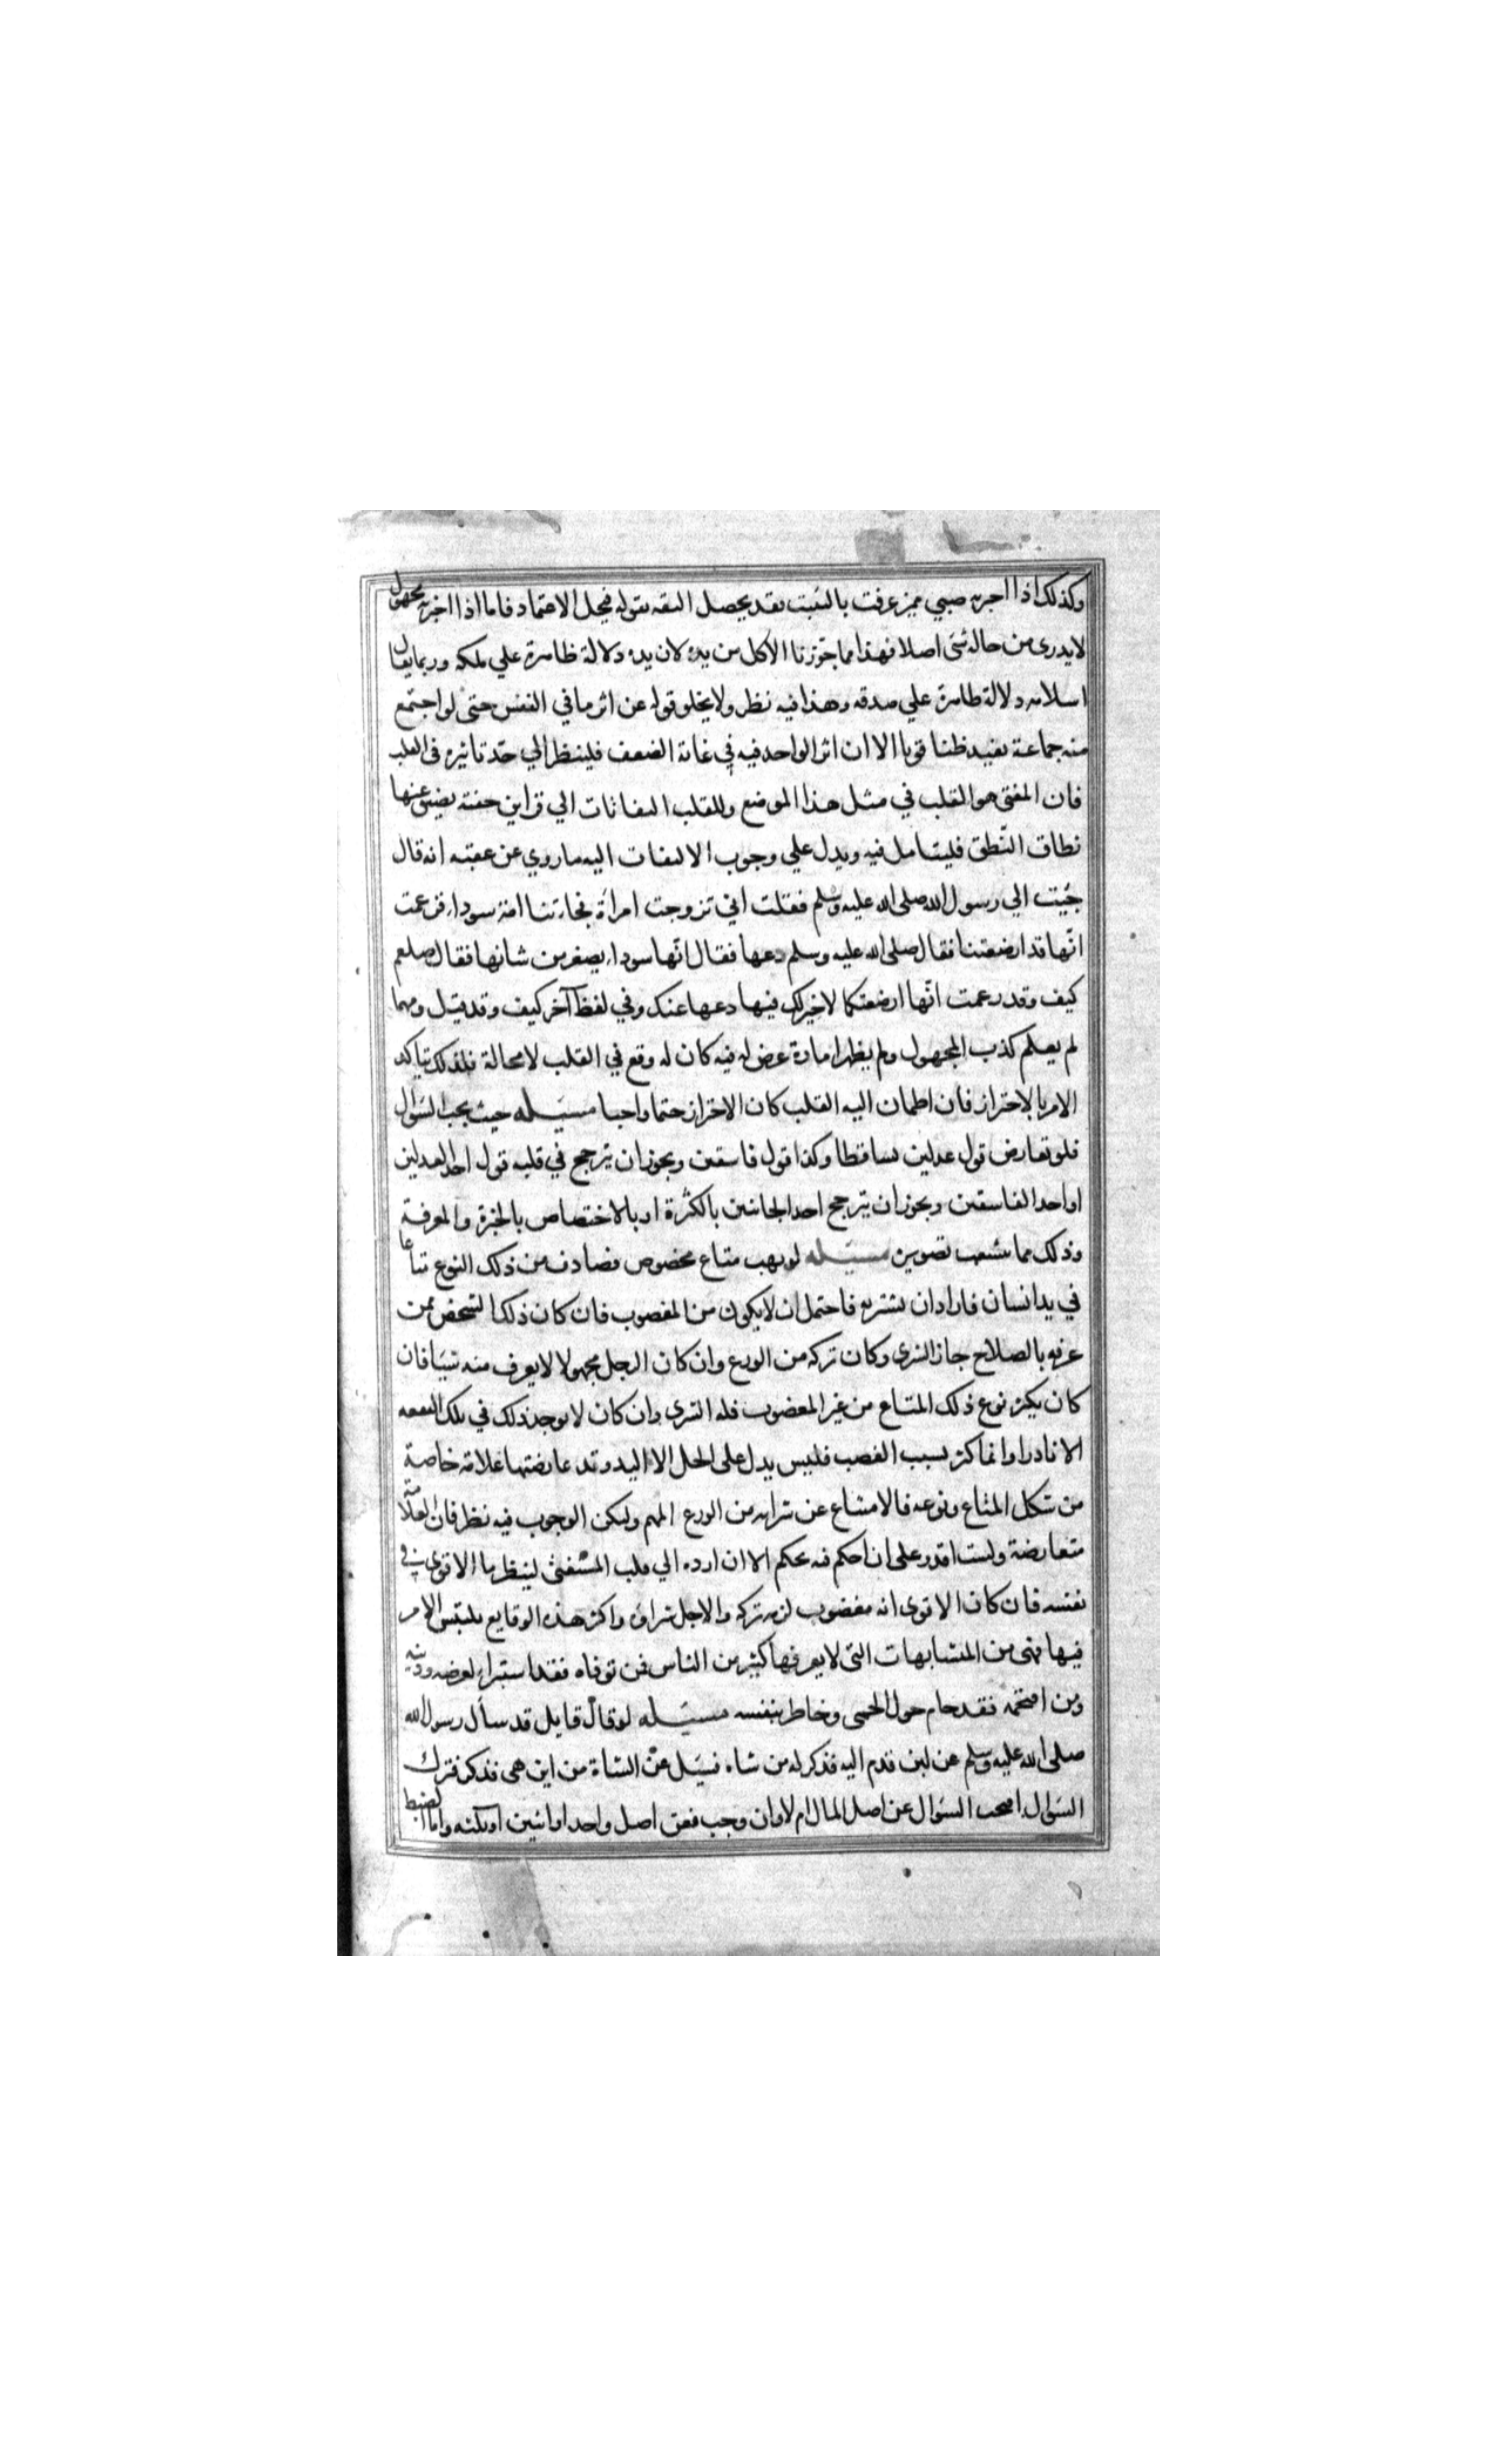 وكذلك اذا اخبره صبي مميز عرفت بالتثبت فقد يحصل الثقه بقوله فيحل الاعتماد فاما اذا اخبر به مجهول
لا يدرى من حاله شئ اصلا فهذا مما جوزنا الاكل من يده لان يده دلالة ظاهرة علي ملكه وربما يقال
اسلامه دلالة ظاهرة علي صدقه وهذا فيه نظر ولا يخلو قوله عن اثر ما في النفس حتى لو اجتمع
منه جماعة يفيد ظنا قويا الا ان اثر الواحد فيه في غاية الضعف فلينظر الي حد تاثيره في القلب
فان المفتى هو القلب في مثل هذا الموضع وللقلب التفاتات الي قراين خفية يضيق عنها
نطاق النطق فليتامل فيه ويدل علي وجوب الالتفات اليه ما روي عن عقبة انه قال
جئت الي رسول الله صلى الله عليه وسلم فقلت اني تزوجت امرأة فجاءتنا امة سوداء فزعمت
انها قد ارضعتنا فقال صلى الله عليه وسلم دعها فقال انها سوداء يصغر من شانها فقال صلعم
كيف وقد زعمت انها ارضعتكما لا خير لك فيها دعها عنك وفي لفظ آخر كيف وقد قيل ومهما
لم يعلم كذب المجهول ولم يظهر امارة غرض له فيه كان له وقع في القلب لا محالة فلذلك يتاكد
الامر بالاحتراز فان اطمان اليه القلب كان الاحتراز حتما واجبا مسيله حيث يجب السؤال
فلو تعارض قول عدلين تساقطا وكذا قول فاسقين ويجوز ان يترجح في قلبه قول احد العدلين
او احد الفاسقين ويجوز ان يترجح احد الجانبين بالكثرة او بالاختصاص بالخبرة والمعرفة
وذلك مما يتشعب تصويره مسيله لو نهب متاع مخصوص فصادف من ذلك النوع متاعا
في يد انسان فاراد ان يشتريه فاحتمل ان لا يكون من المغصوب فان كان ذلك الشخص ممن
عرفه بالصلاح جاز الشرى وكان تركه من الورع وان كان الرجل مجهولا لا يعرف منه شيئا فان
كان يكثر نوع ذلك المتاع من غير المغصوب فله الشرى وان كان لا يوجد ذلك في تلك البقعه
الا نادرا وانما كثر بسبب الغصب فليس يدل على الحل الا اليد وقد عارضتها علامة خاصة
من شكل المتاع ونوعه فالامتناع عن شرايه من الورع المهم ولكن الوجوب فيه نظر فان العلامة
متعارضة ولست اقدر على ان احكم فيه بحكم الا ان ارده الي قلب المستفتى لينظر ما الاقوى في
نفسه فان كان الاقوى انه مغصوب لزمه تركه والا حل شراؤه واكثر هذه الوقايع يلتبس الامر
فيها فهى من المتشابهات التى لا يعرفها كثير من الناس فمن توقاه فقد استبراء لعرضه ودينه
ومن اقتحمه فقد حام حول الحمى وخاطر بنفسه مسيله لو قال قايل قد سأل رسول الله
صلى الله عليه وسلم عن لبن قدم اليه فذكر له من شاة فسيل عن الشاة من اين هى فذكر فترك
السؤال افيجب السؤال عن اصل المال ام لا وان وجب فعن اصل واحد او اثنين او ثلثه وما الضبط